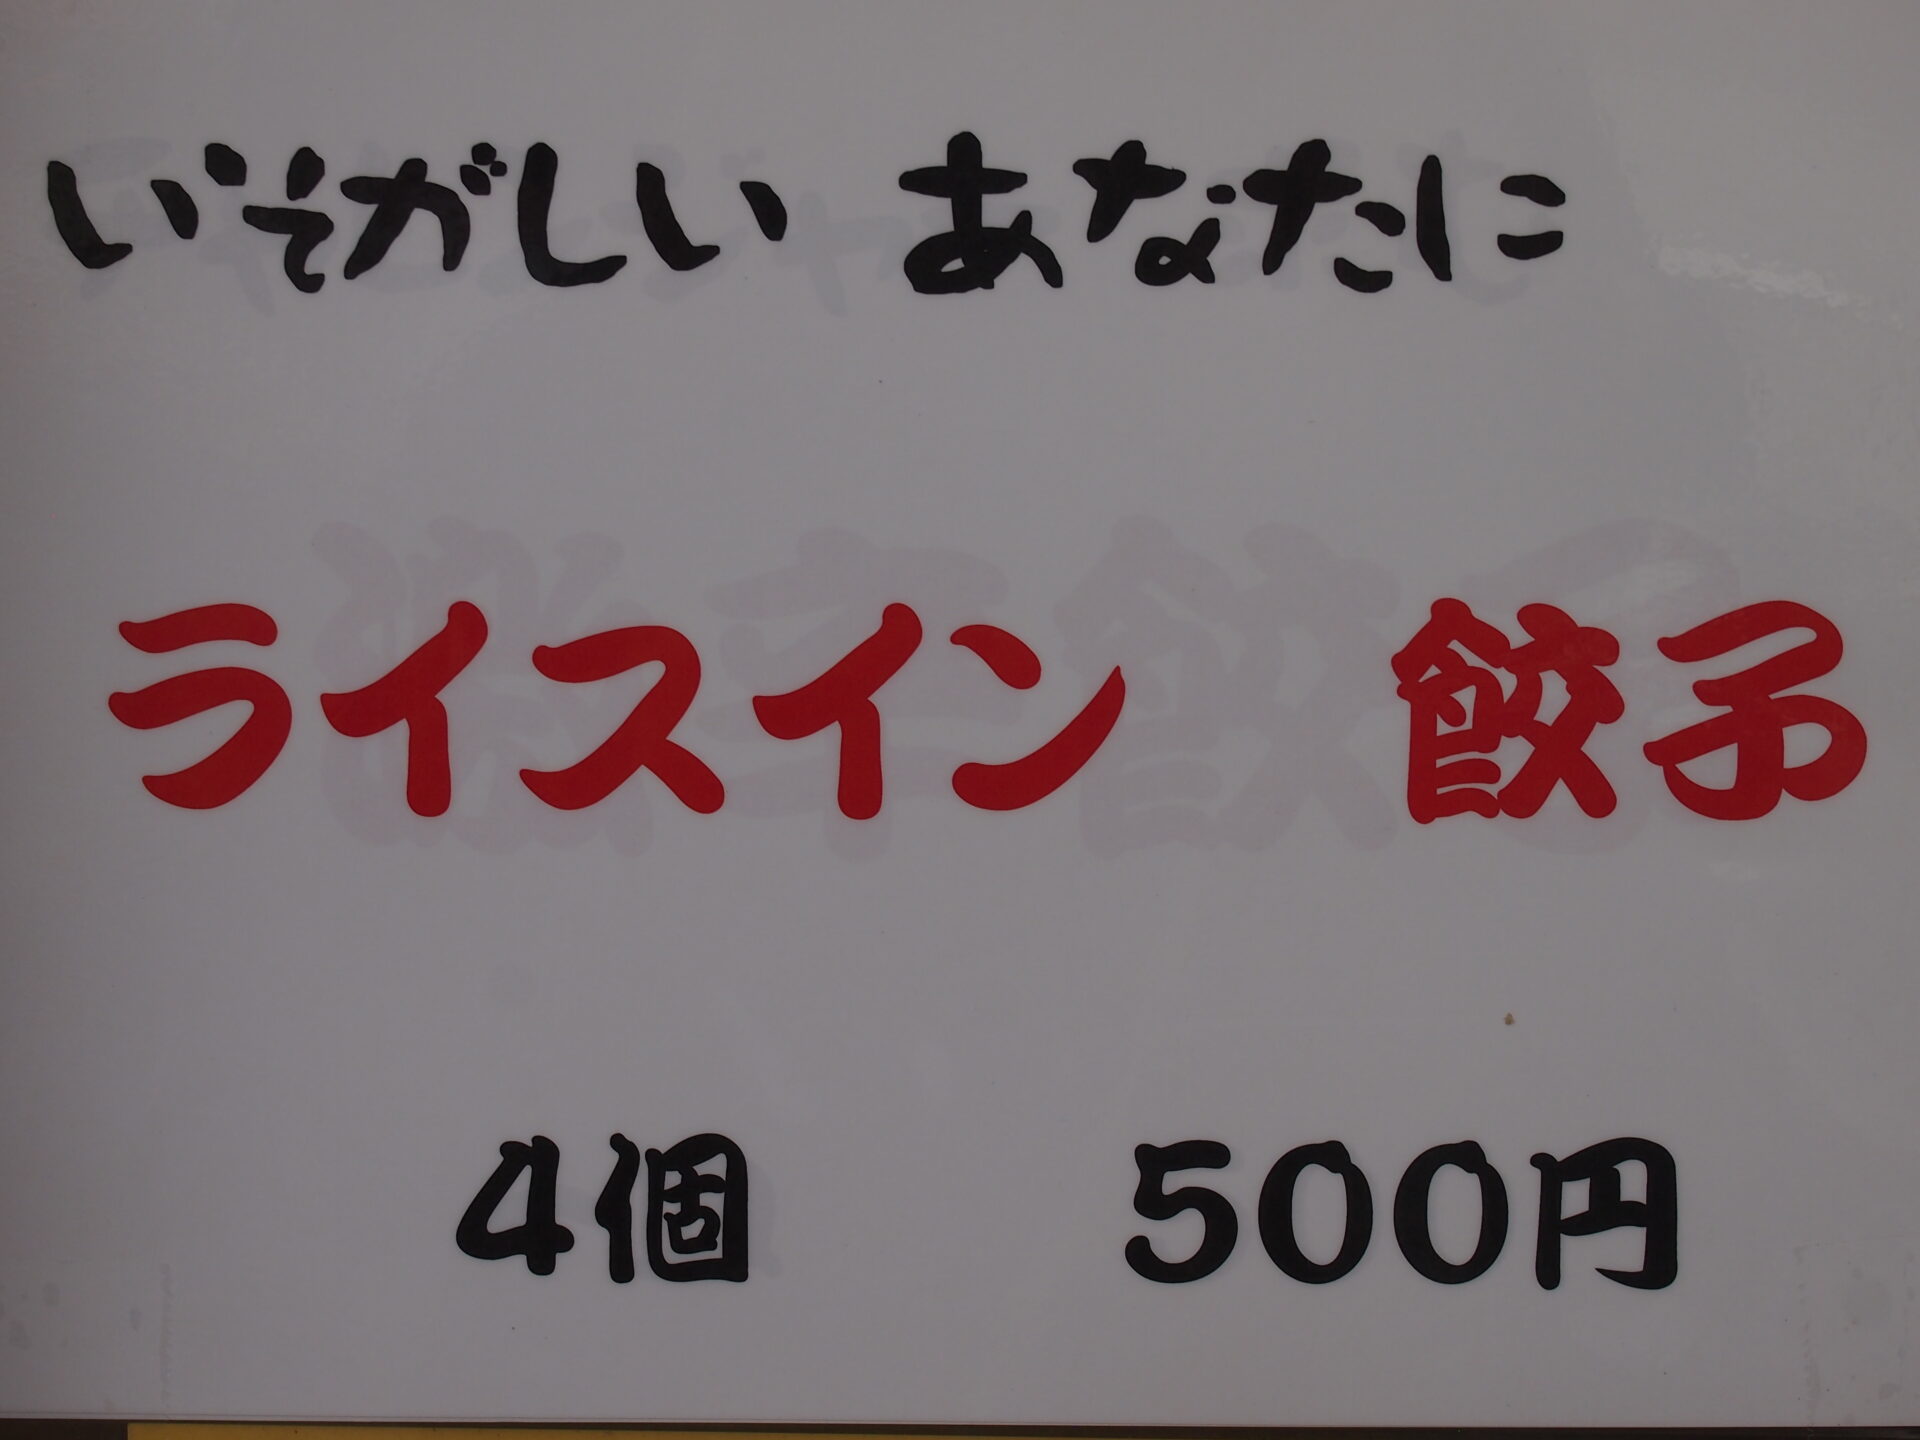 いそがしい あなたに
ライスイン 餃子
4個 500円